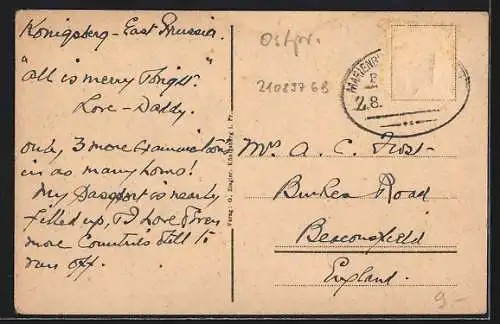 Königsberg – East Prussia.
"All is merry & bright."
Love – Daddy.
only 3 more examinations
in as many hours!
My Passport is nearly
filled up, & I have seven
more Countries still to
run off.
Ostpr.
210897 6B
MARIENB
28.
Verlag: O. Ziegler, Königsberg i. Pr.
Mrs A. C. Frost
Burkes Road
Beaconsfield
England.
9.-